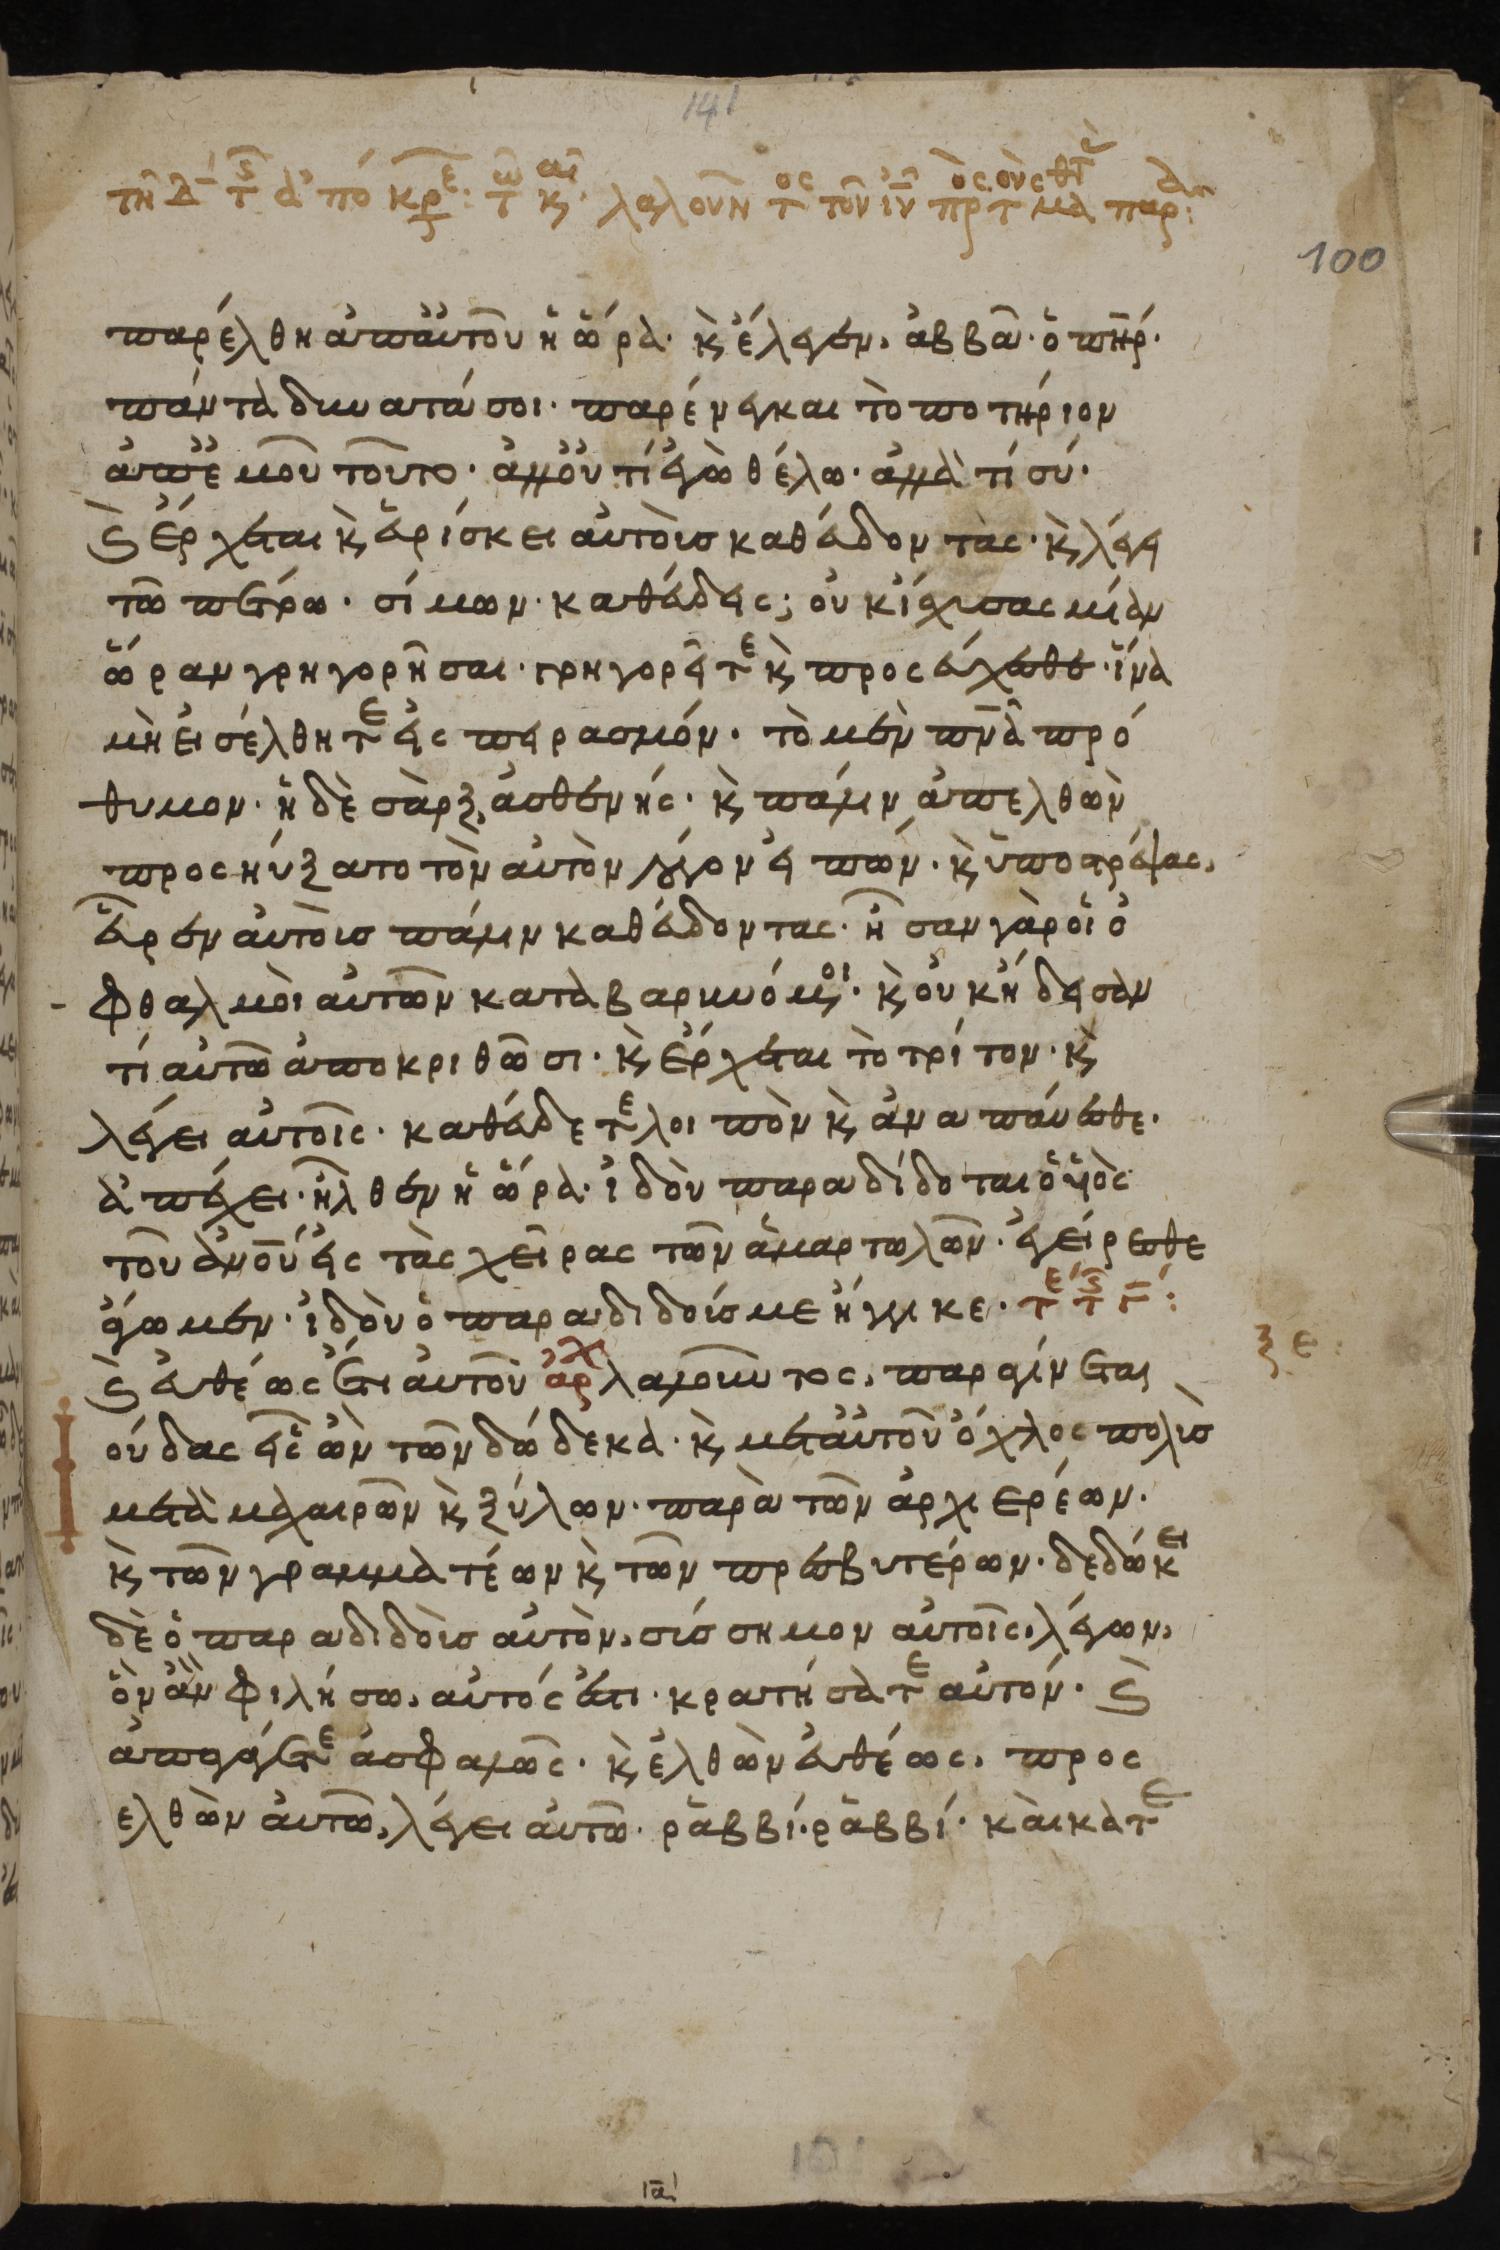 141
τῆ Δ τῆς ϛ ἀπό κρε: τῶ καί λαλοῦν τος τοῦ ιυ πρὸς τοὺς μαθτ παρ:
100
παρέλθη ἀπ αὐτοῦ ἡ ὥρα· κ̀ ἔλεγεν, ἀββᾶ· ὁ πη̅ρ·
πάντα δυνατά σοι· παρένεγκαι τὸ ποτήριον
ἀπ ἐμοῦ τοῦτο· ἀλλ οὐ τί ἐγὼ θέλω· ἀλλὰ τί σύ·
Κ̀ ἔρχεται κ̀ εὑρίσκει αὐτοὺσ καθεύδοντας· κ̀ λέγει
τῶ πέτρω· σίμων· καθεύδεις; οὐκ ἴσχυσας μίαν
ὥραν γρηγορῆσαι· γρηγορεῖτε κ̀ προσεύχεσθε· ἵνα
μὴ εἰσέλθητε εἰς πειρασμόν· τὸ μὲν πν̅α πρό
θυμον· ἡ δὲ σὰρξ, ἀσθενής· κ̀ πάλιν ἀπελθὼν
προσηύξατο τὸν αὐτὸν λόγον εἰπών· κ̀ ὑποστρέψας,
εὗρεν αὐτοὺσ πάλιν καθεύδοντας· ἦσαν γὰρ οἱ ὀ
φθαλμοὶ αὐτῶν καταβαρυνόμενοι· κ̀ οὐκ ἤδεισαν
τί αὐτῶ ἀποκριθῶσι· κ̀ ἔρχεται τὸ τρίτον· κ̀
λέγει αὐτοῖς· καθεύδετε λοιπὸν κ̀ ἀναπαύεσθε·
ἀπέχει· ἦλθεν ἡ ὥρα· ἰδοὺ παραδίδοται ὁ υἱὸς
τοῦ ἀν̅ου εἰς τὰς χεῖρας τῶν ἁμαρτωλῶν· ἐγείρεσθε
ἄγωμεν· ἰδοὺ ὁ παραδιδούς με ἤγγικε· τε τς γ:
ξε:
Κ̀ εὐθέως ἔτι αὐτοῦ ἀρχ λαλοῦντος, παραγίνεται
ἰούδας εἷς ὢν τῶν δώδεκα· κ̀ μετ αὐτοῦ ὄχλος πολὺσ
μετὰ μαχαιρῶν κ̀ ξύλων· παρὰ τῶν ἀρχιερέων·
κ̀ τῶν γραμματέων κ̀ τῶν πρεσβυτέρων· δεδώκει
δὲ ὁ παραδιδοὺσ αὐτὸν, σύσσημον αὐτοῖς, λέγων,
ὃν ἂν φιλήσω, αὐτός ἐστι· κρατήσατε αὐτόν· Κ̀
ἀπαγάγετε ἀσφαλῶς· κ̀ ἐλθὼν εὐθέως, προς
ελθὼν αὐτῶ, λέγει αὐτῶ· ῥαββί· ῥαββί· καὶ κατε
ια